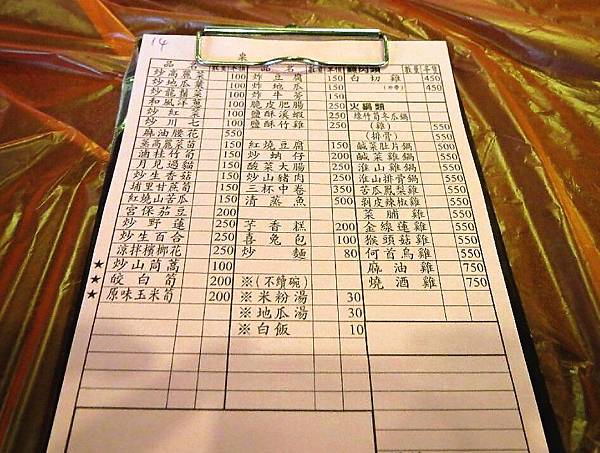 14
桌
品 名 數量 單價
炒高麗菜 100
炒地瓜葉 100
炒龍葵菜 100
和風洋蔥 100
炒紅菜 100
炒川七 100
麻油腰花 550
高麗菜苗 150
油桂竹筍 150
月見過貓 150
炒生香菇 150
埔里甘蔗筍 150
紅燒山苦瓜 150
宮保茄豆 200
炒野蓮 200
炒生百合 250
涼拌檳榔花 250
★ 炒山茼蒿 100
★ 皎白筍 200
★ 原味玉米筍 200
品 名 數量 單價
炸豆腐 150
炸地瓜 150
炸牛蒡 150
脆皮肥腸 250
鹽酥溪蝦 250
鹽酥竹雞 250
紅燒豆腐 150
炒蚋仔 200
酸菜大腸 250
炒山豬肉 250
三杯中卷 350
清蒸魚 500
芋香糕 200
喜兔包 100
炒麵 80
※(不續碗)
※米粉湯 30
※地瓜湯 30
※白飯 10
雞肉類 數量 單價
白切雞 450
450
火鍋類
(雞) 550
(排骨) 550
鹹菜肚片鍋 500
鹹菜雞鍋 550
淮山雞鍋 550
淮山排骨鍋 550
苦瓜鳳梨雞 550
剝皮辣椒雞 550
菜脯雞 550
金線蓮雞 550
猴頭菇雞 550
何首烏雞 550
麻油雞 750
燒酒雞 750